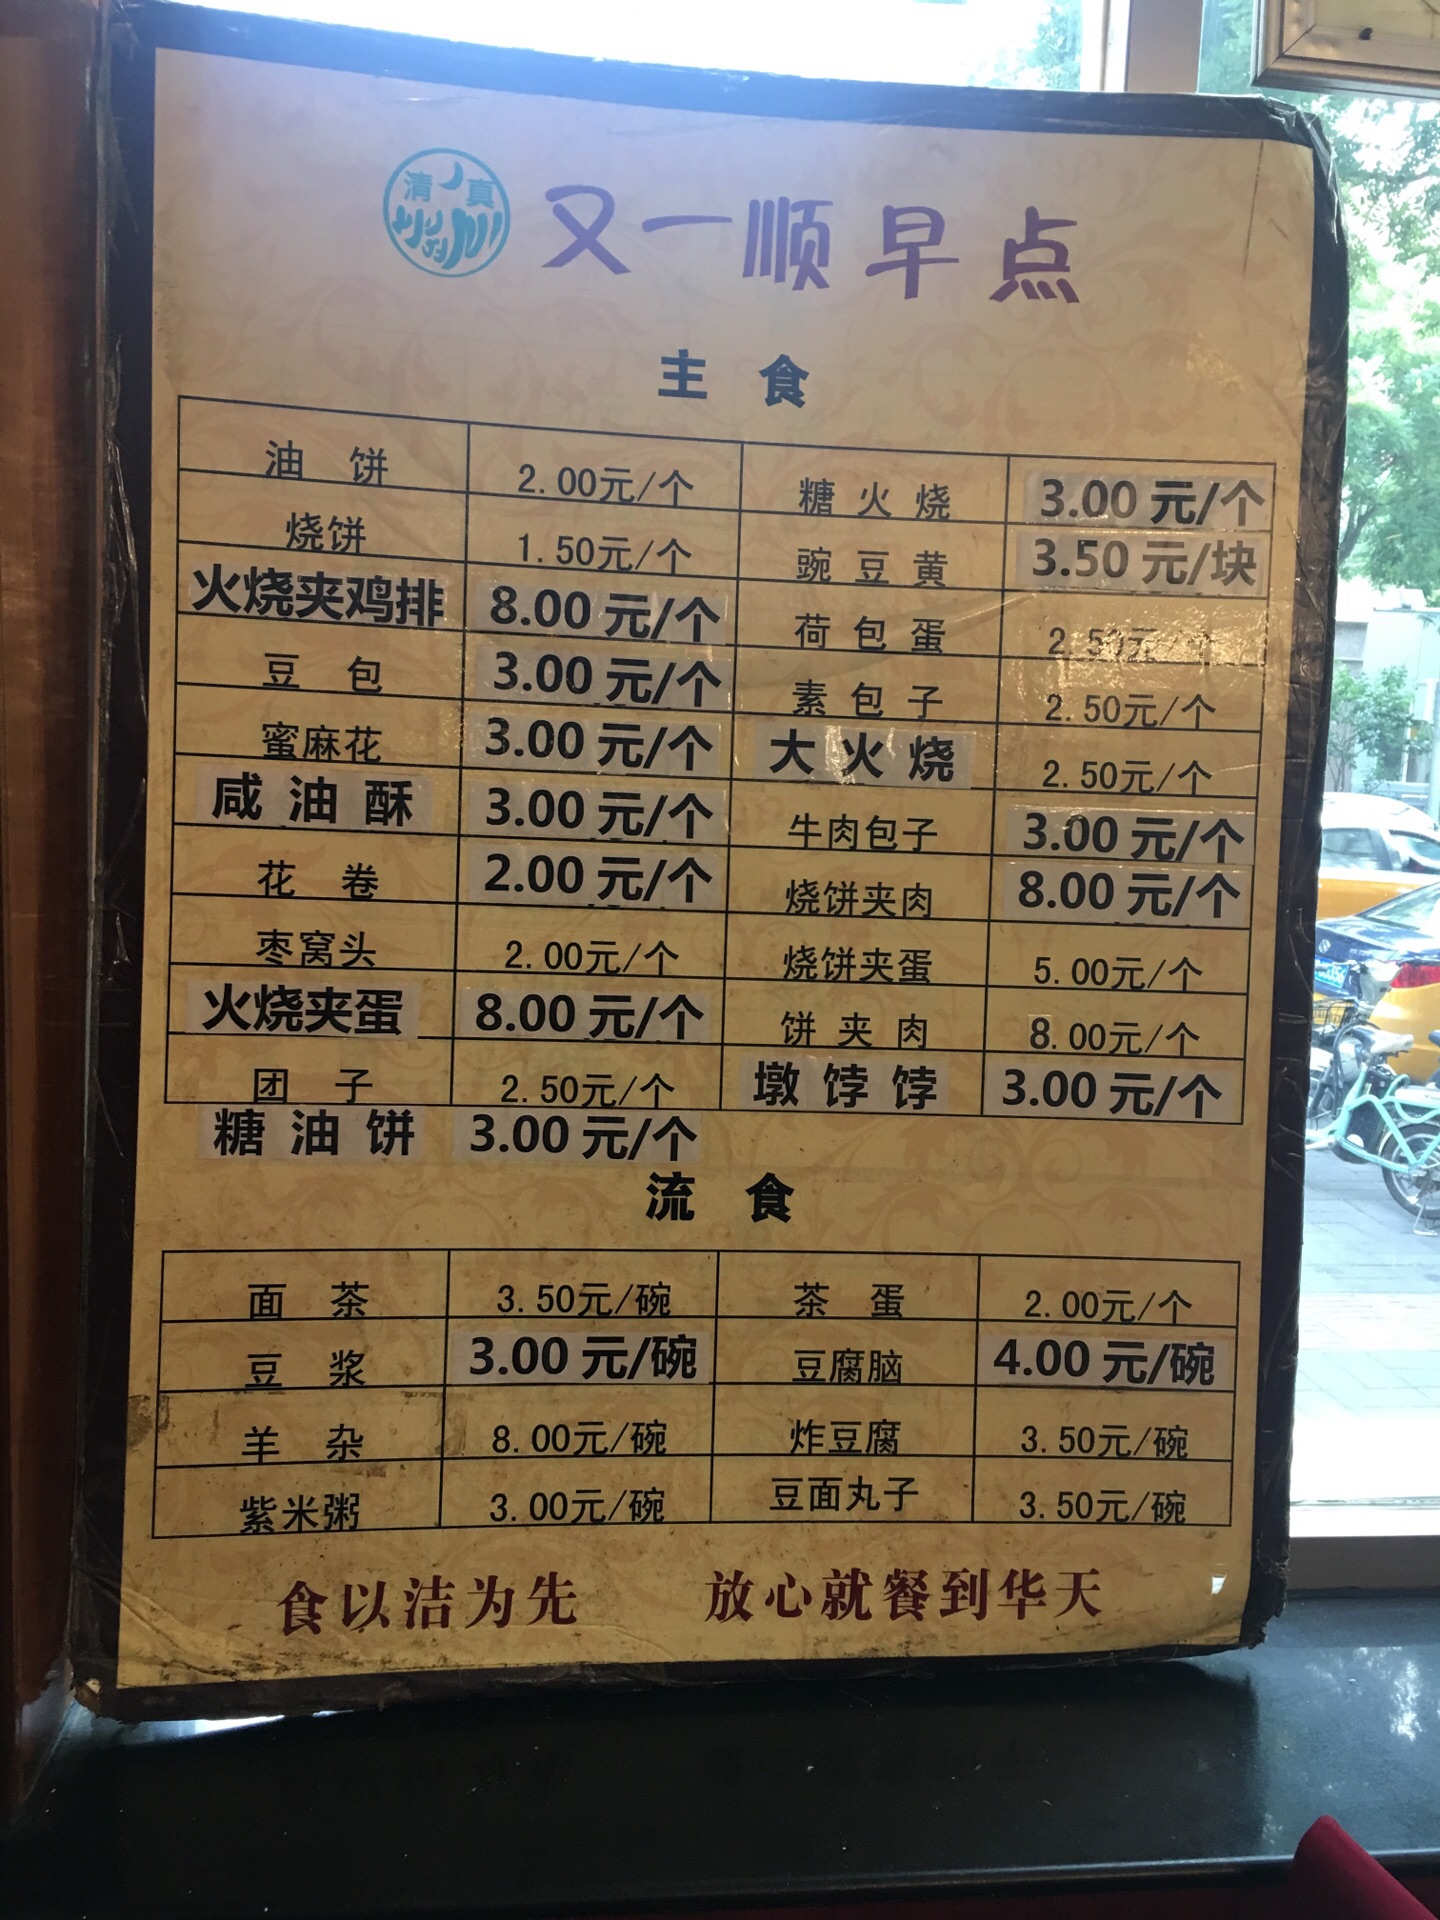 清真
又一顺早点
主食
油饼 2.00元/个 糖火烧 3.00元/个
烧饼 1.50元/个 豌豆黄 3.50元/块
火烧夹鸡排 8.00元/个 荷包蛋 2.50元/个
豆包 3.00元/个 素包子 2.50元/个
蜜麻花 3.00元/个 大火烧 2.50元/个
咸油酥 3.00元/个 牛肉包子 3.00元/个
花卷 2.00元/个 烧饼夹肉 8.00元/个
枣窝头 2.00元/个 烧饼夹蛋 5.00元/个
火烧夹蛋 8.00元/个 饼夹肉 8.00元/个
团子 2.50元/个 墩饽饽 3.00元/个
糖油饼 3.00元/个
流食
面茶 3.50元/碗 茶蛋 2.00元/个
豆浆 3.00元/碗 豆腐脑 4.00元/碗
羊杂 8.00元/碗 炸豆腐 3.50元/碗
紫米粥 3.00元/碗 豆面丸子 3.50元/碗
食以洁为先 放心就餐到华天